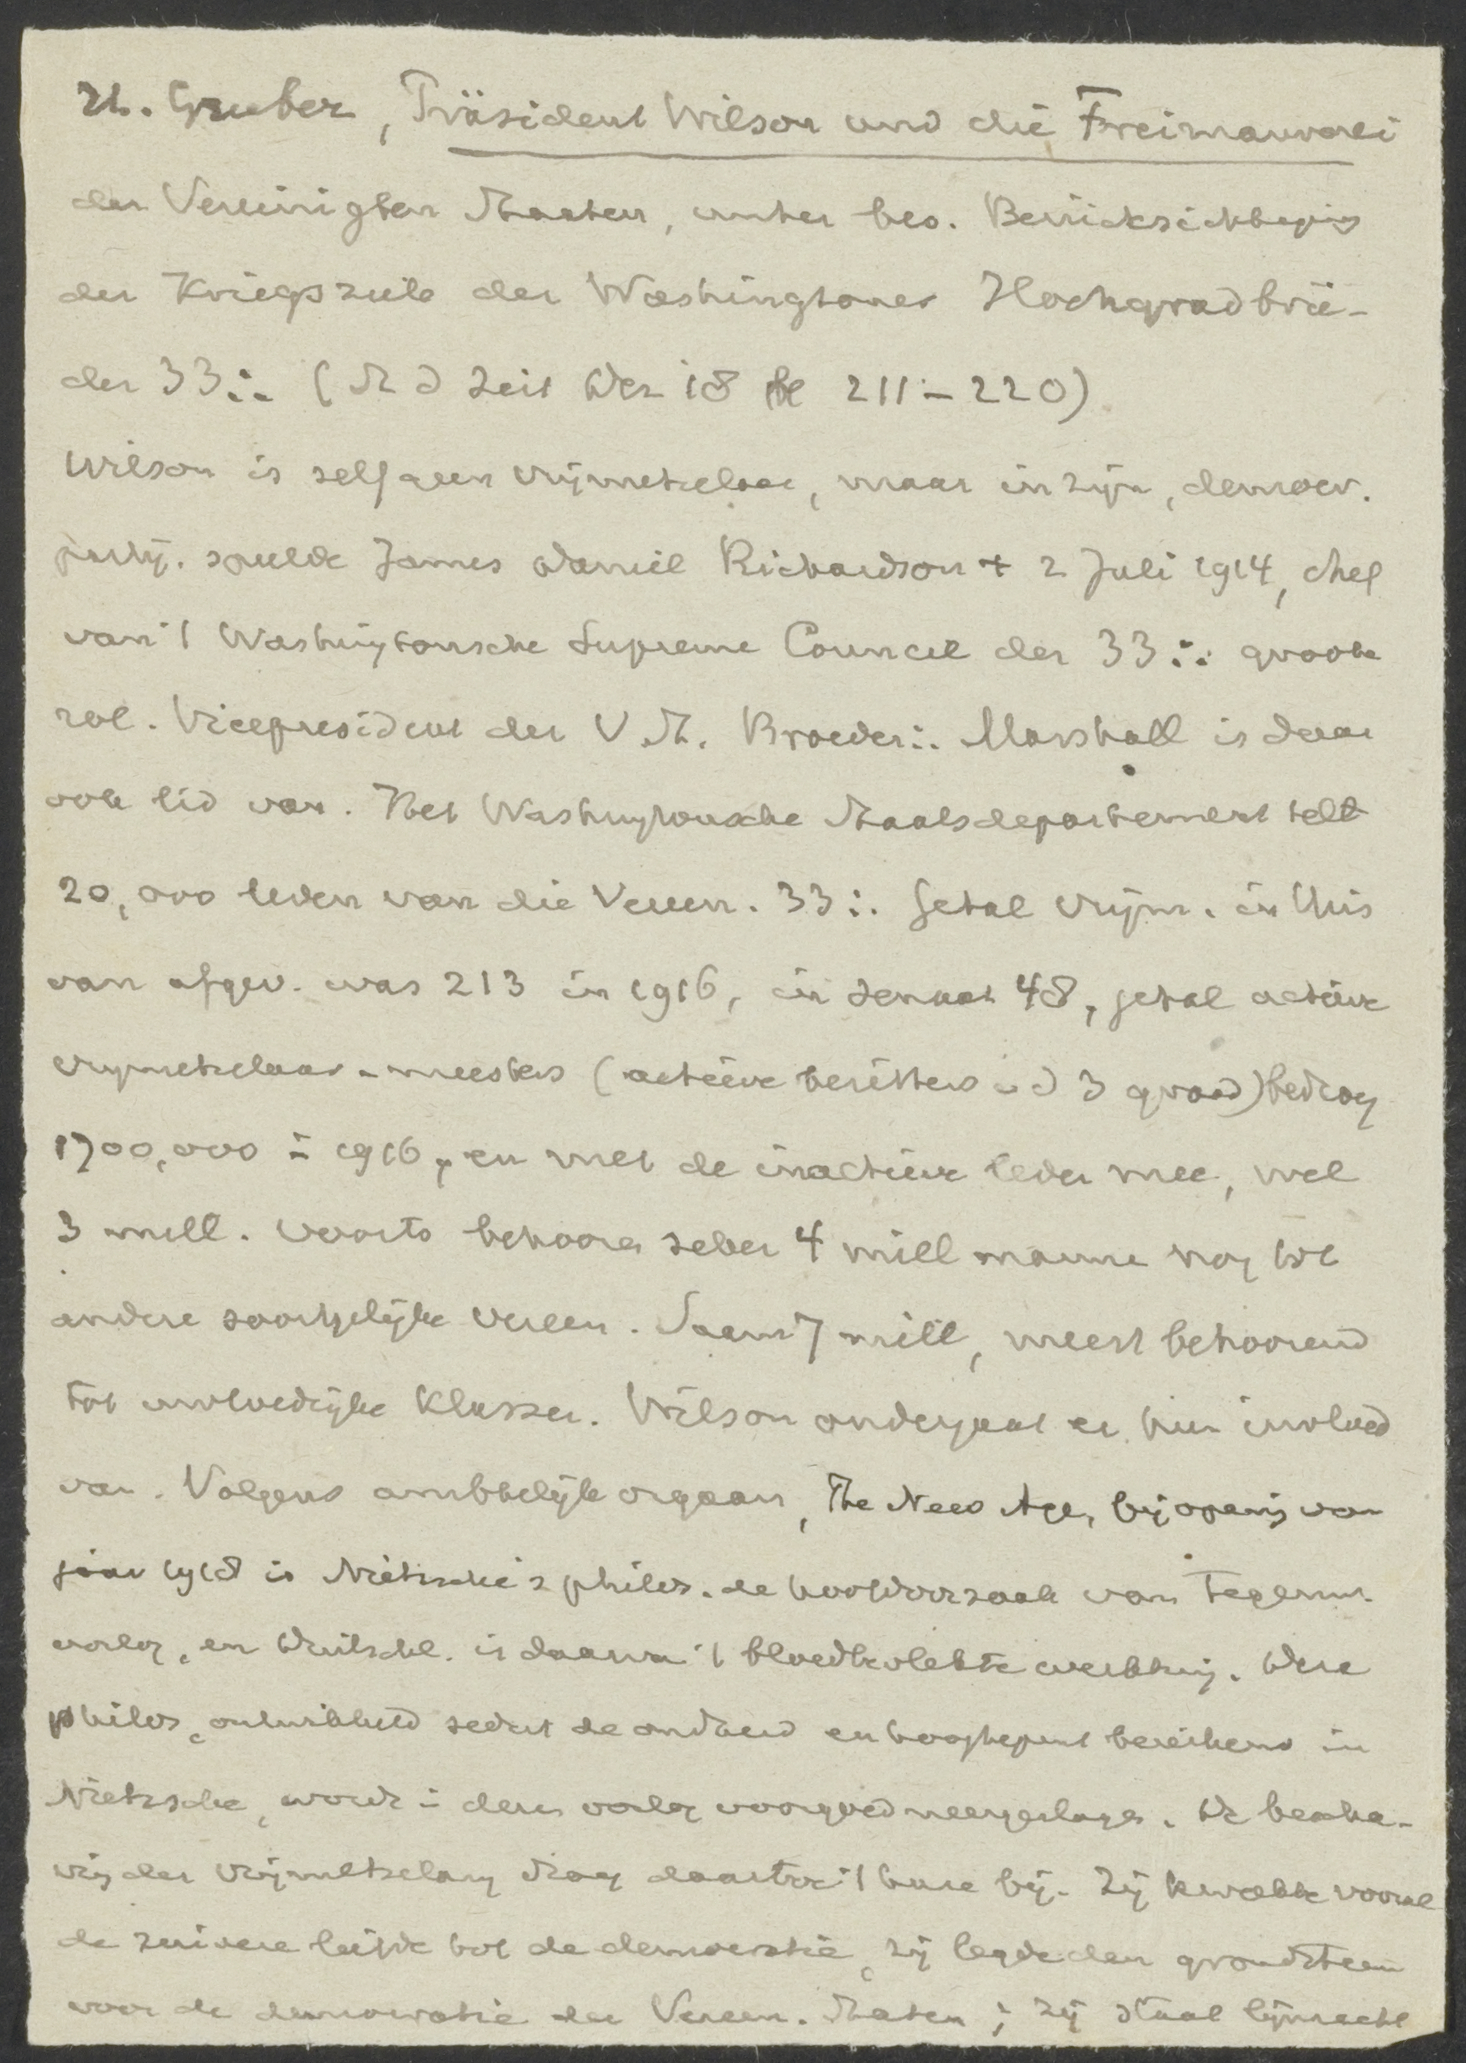 H. Gruber, Präsident Wilson und die Freimaurerei
der Vereinigten Staaten, unter bes. Berücksichtigung
der Kriegsziele der Washingtoner Hochgradbrü-
der 33∴ (St d Zeit Dez 18 bl 211-220)
Wilson is zelf geen vrijmetselaar, maar in zijn, democr.
partij. speelde James Daniel Richardson + 2 Juli 1914, chef
van 't Washingtonsche Supreme Council der 33∴ groote
rol. Vicepresident der V. St. Broeder∴ Marshall is daar
ook lid van. Het Washingtonsche Staatsdepartement telt
20,000 leden van die Vereen. 33∴ Getal vrijm. in Huis
van afgev. was 213 in 1916, in Senaat 48, getal actieve
vrijmetselaar-meesters (actieve bezitters v d 3 graad) bedroeg
1700,000 in 1916, en met de inactieve leden mee, wel
3 mill. Voorts behooren zeker 4 mill mannen nog tot
andere soortgelijke vereen. Saam 7 mill, meest behoorend
tot invloedrijke klassen. Wilson ondergaat er hun invloed
van. Volgens ambtelijk orgaan, The New Age, bij opening van
jaar 1918 is Nietzsche's philos. de hoofdoorzaak van tegenw.
oorlog, en Duitschl. is daarvan 't bloedbevlekte werktuig. Deze
philos, ontwikkeld sedert de oudheid en hoogtepunt bereikend in
Nietzsche, wordt in dezen oorlog voorgoed neergeslagen. De bescha-
ving der vrijmetselarij droeg daartoe 't hare bij. Zij kweekte vooral
de zuivere liefde tot de democratie, zij legde den grondsteen
voor de democratie der Vereen. Staten; zij staat lijnrecht